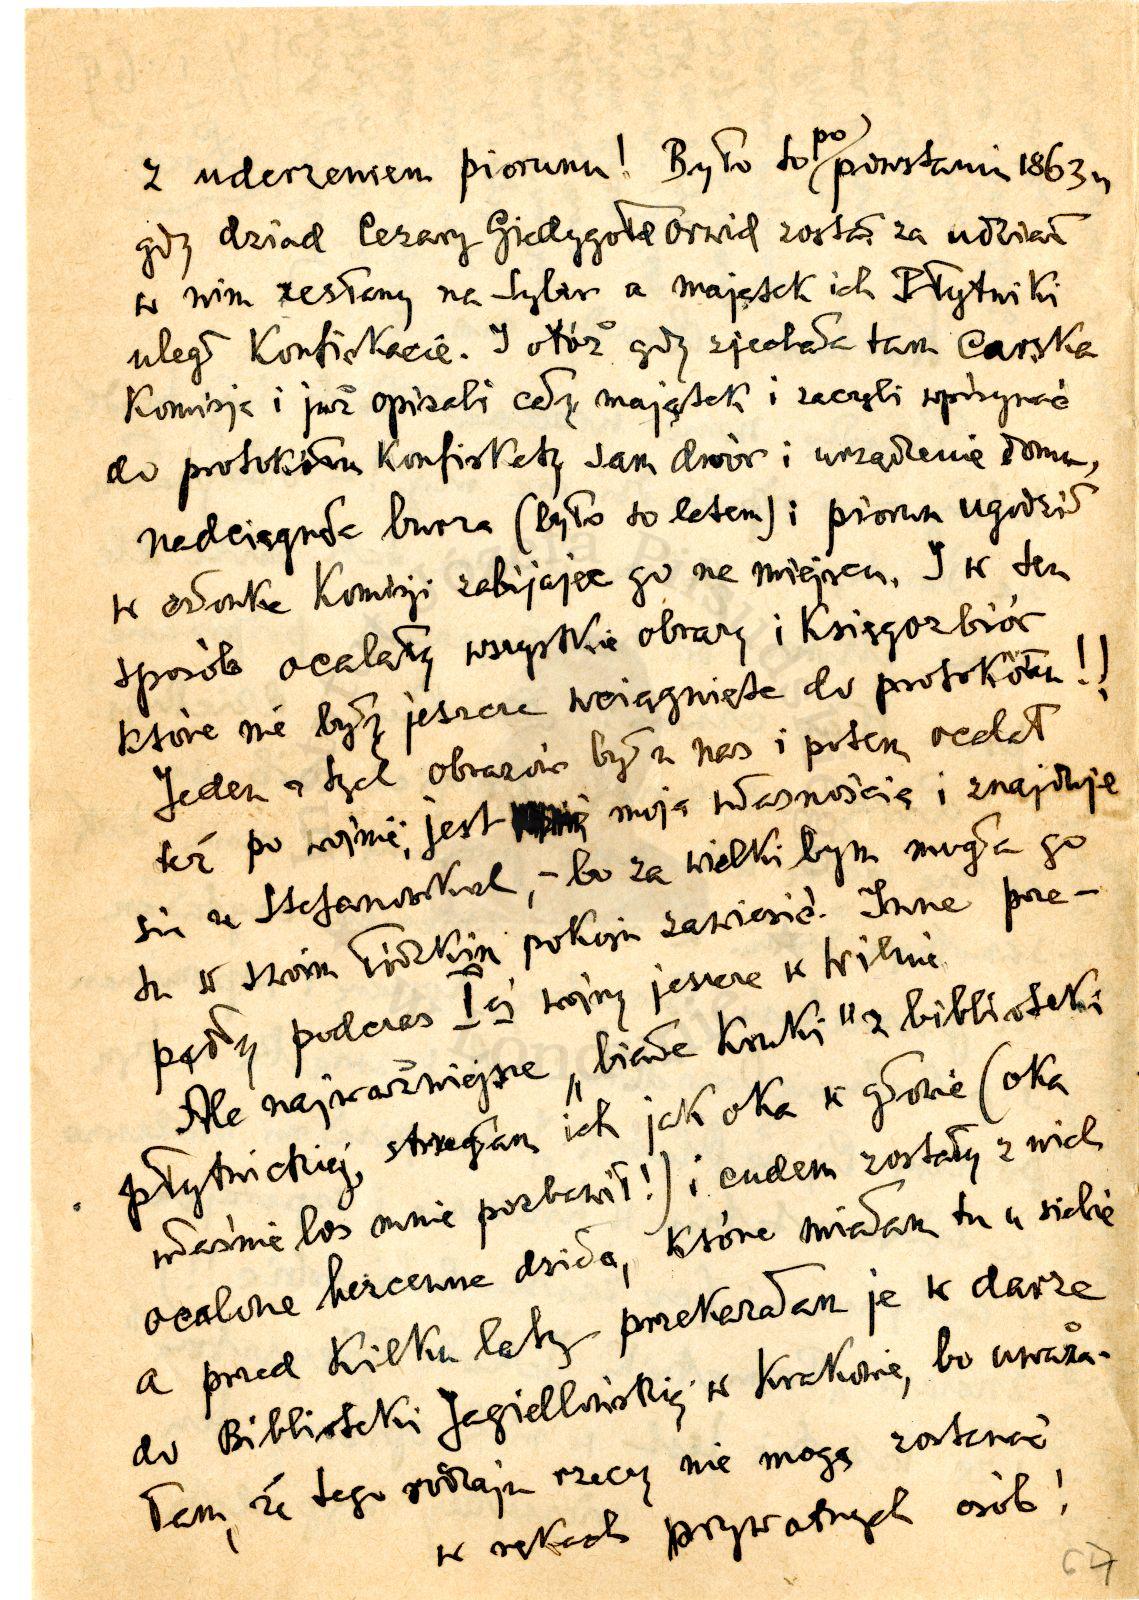 z uderzeniem piorunu! Było to po powstaniu 1863 r
gdy dziad Cezary Giedygołd Orwid został za udział
w nim zesłany na Sybir a majątek ich Płytniki
uległ Konfiskacie. I otóż gdy zjechała tam Carska
Komisja i już opisali cały majątek i zaczęli wpisywać
do protokółu Konfiskaty sam dwór i urządzenie domu,
nadciągnęła burza (było to latem) i piorun ugodził
w członka Komisji zabijając go na miejscu. I w ten
sposób ocalały wszystkie obrazy i Księgozbiór
które nie były jeszcze wciągnięte do protokółu!!
Jeden z tych obrazów był u nas i potem ocalał
też po wojnie, jest moją własnością i znajduje
się u Stefanowskich, – bo za wielki bym mogła go
tu w swoim łódzkim pokoju zawiesić. Inne prze-
padły podczas I ej wojny jeszcze w Wilnie
Ale najważniejsze „białe Kruki" z biblioteki
płytnickiej, strzegłam ich jak oka w głowie (oka
właśnie los mnie pozbawił!) i cudem zostały z nich
ocalone bezcenne dzieła, które miałam tu u siebie
a przed Kilku laty przekazałam je w darze
do Biblioteki Jagiellońskiej w Krakowie, bo uważa-
łam, że tego rodzaju rzeczy nie mogą zostawać
w rękach prywatnych osób!
67